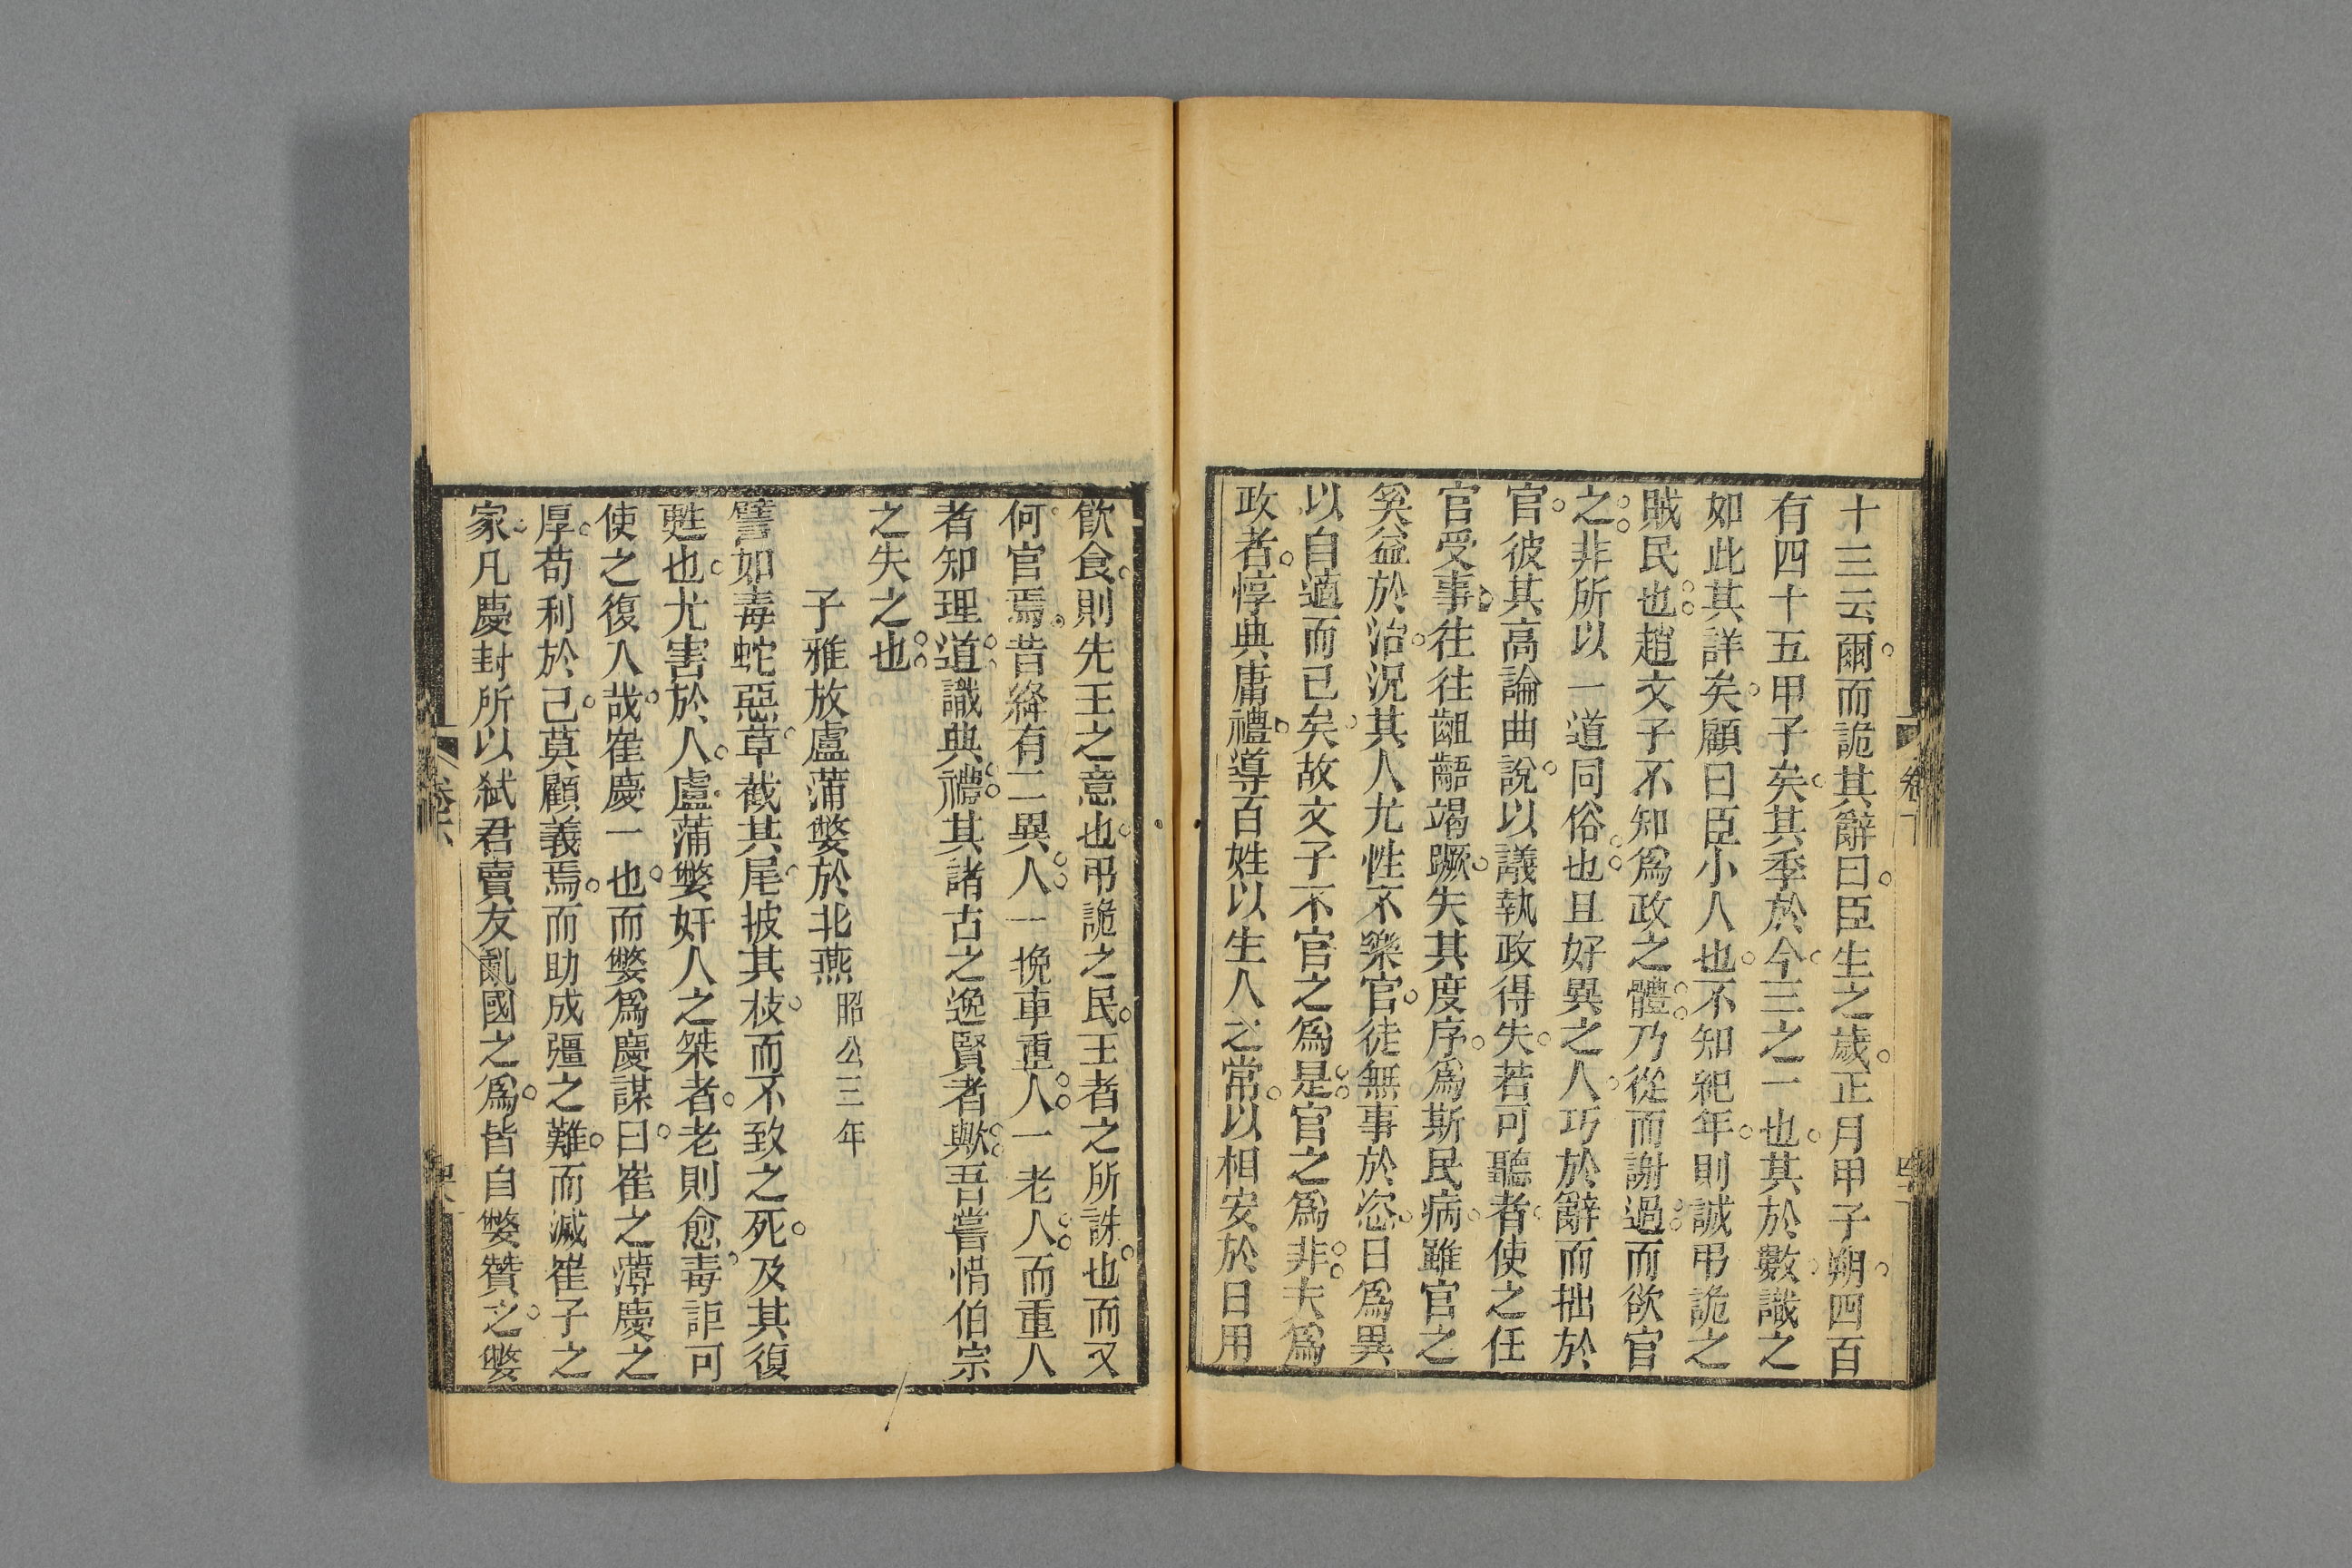 十三云爾而詭其辭曰臣生之歲正月甲子朔四百
有四十五甲子矣其季於今三之一也其於數識之
如此其詳矣顧曰臣小人也不知紀年則誠弔詭之
賊民也趙文子不知爲政之體乃從而謝過而欲官
之非所以一道同俗也且好異之人巧於辭而拙於
官彼其高論曲說以議執政得失若可聽者使之任
官受事往往齟齬竭蹶失其度序爲斯民病雖官之
奚益於治況其人尤性不樂官徒無事於恣日爲異
以自適而已矣故文子不官之爲是官之爲非夫爲
政者惇典庸禮導百姓以生人之常以相安於日用
飲食則先王之意也弔詭之民王者之所誅也而又
何官焉昔絳有二異人一挽車重人一老人而重人
者知理道識典禮其諸古之逸賢者歟吾嘗惜伯宗
之失之也
子雅放盧蒲嫳於北燕 昭公三年
譬如毒蛇惡草截其尾披其枝而不致之死及其復
甦也尤害於人盧蒲嫳奸人之桀者老則愈毒詎可
使之復入哉崔慶一也而嫳爲慶謀曰崔之薄慶之
厚苟利於己莫顧義焉而助成彊之難而滅崔子之
家凡慶封所以弒君賣友亂國之爲皆自嫳贊之嫳
卷六